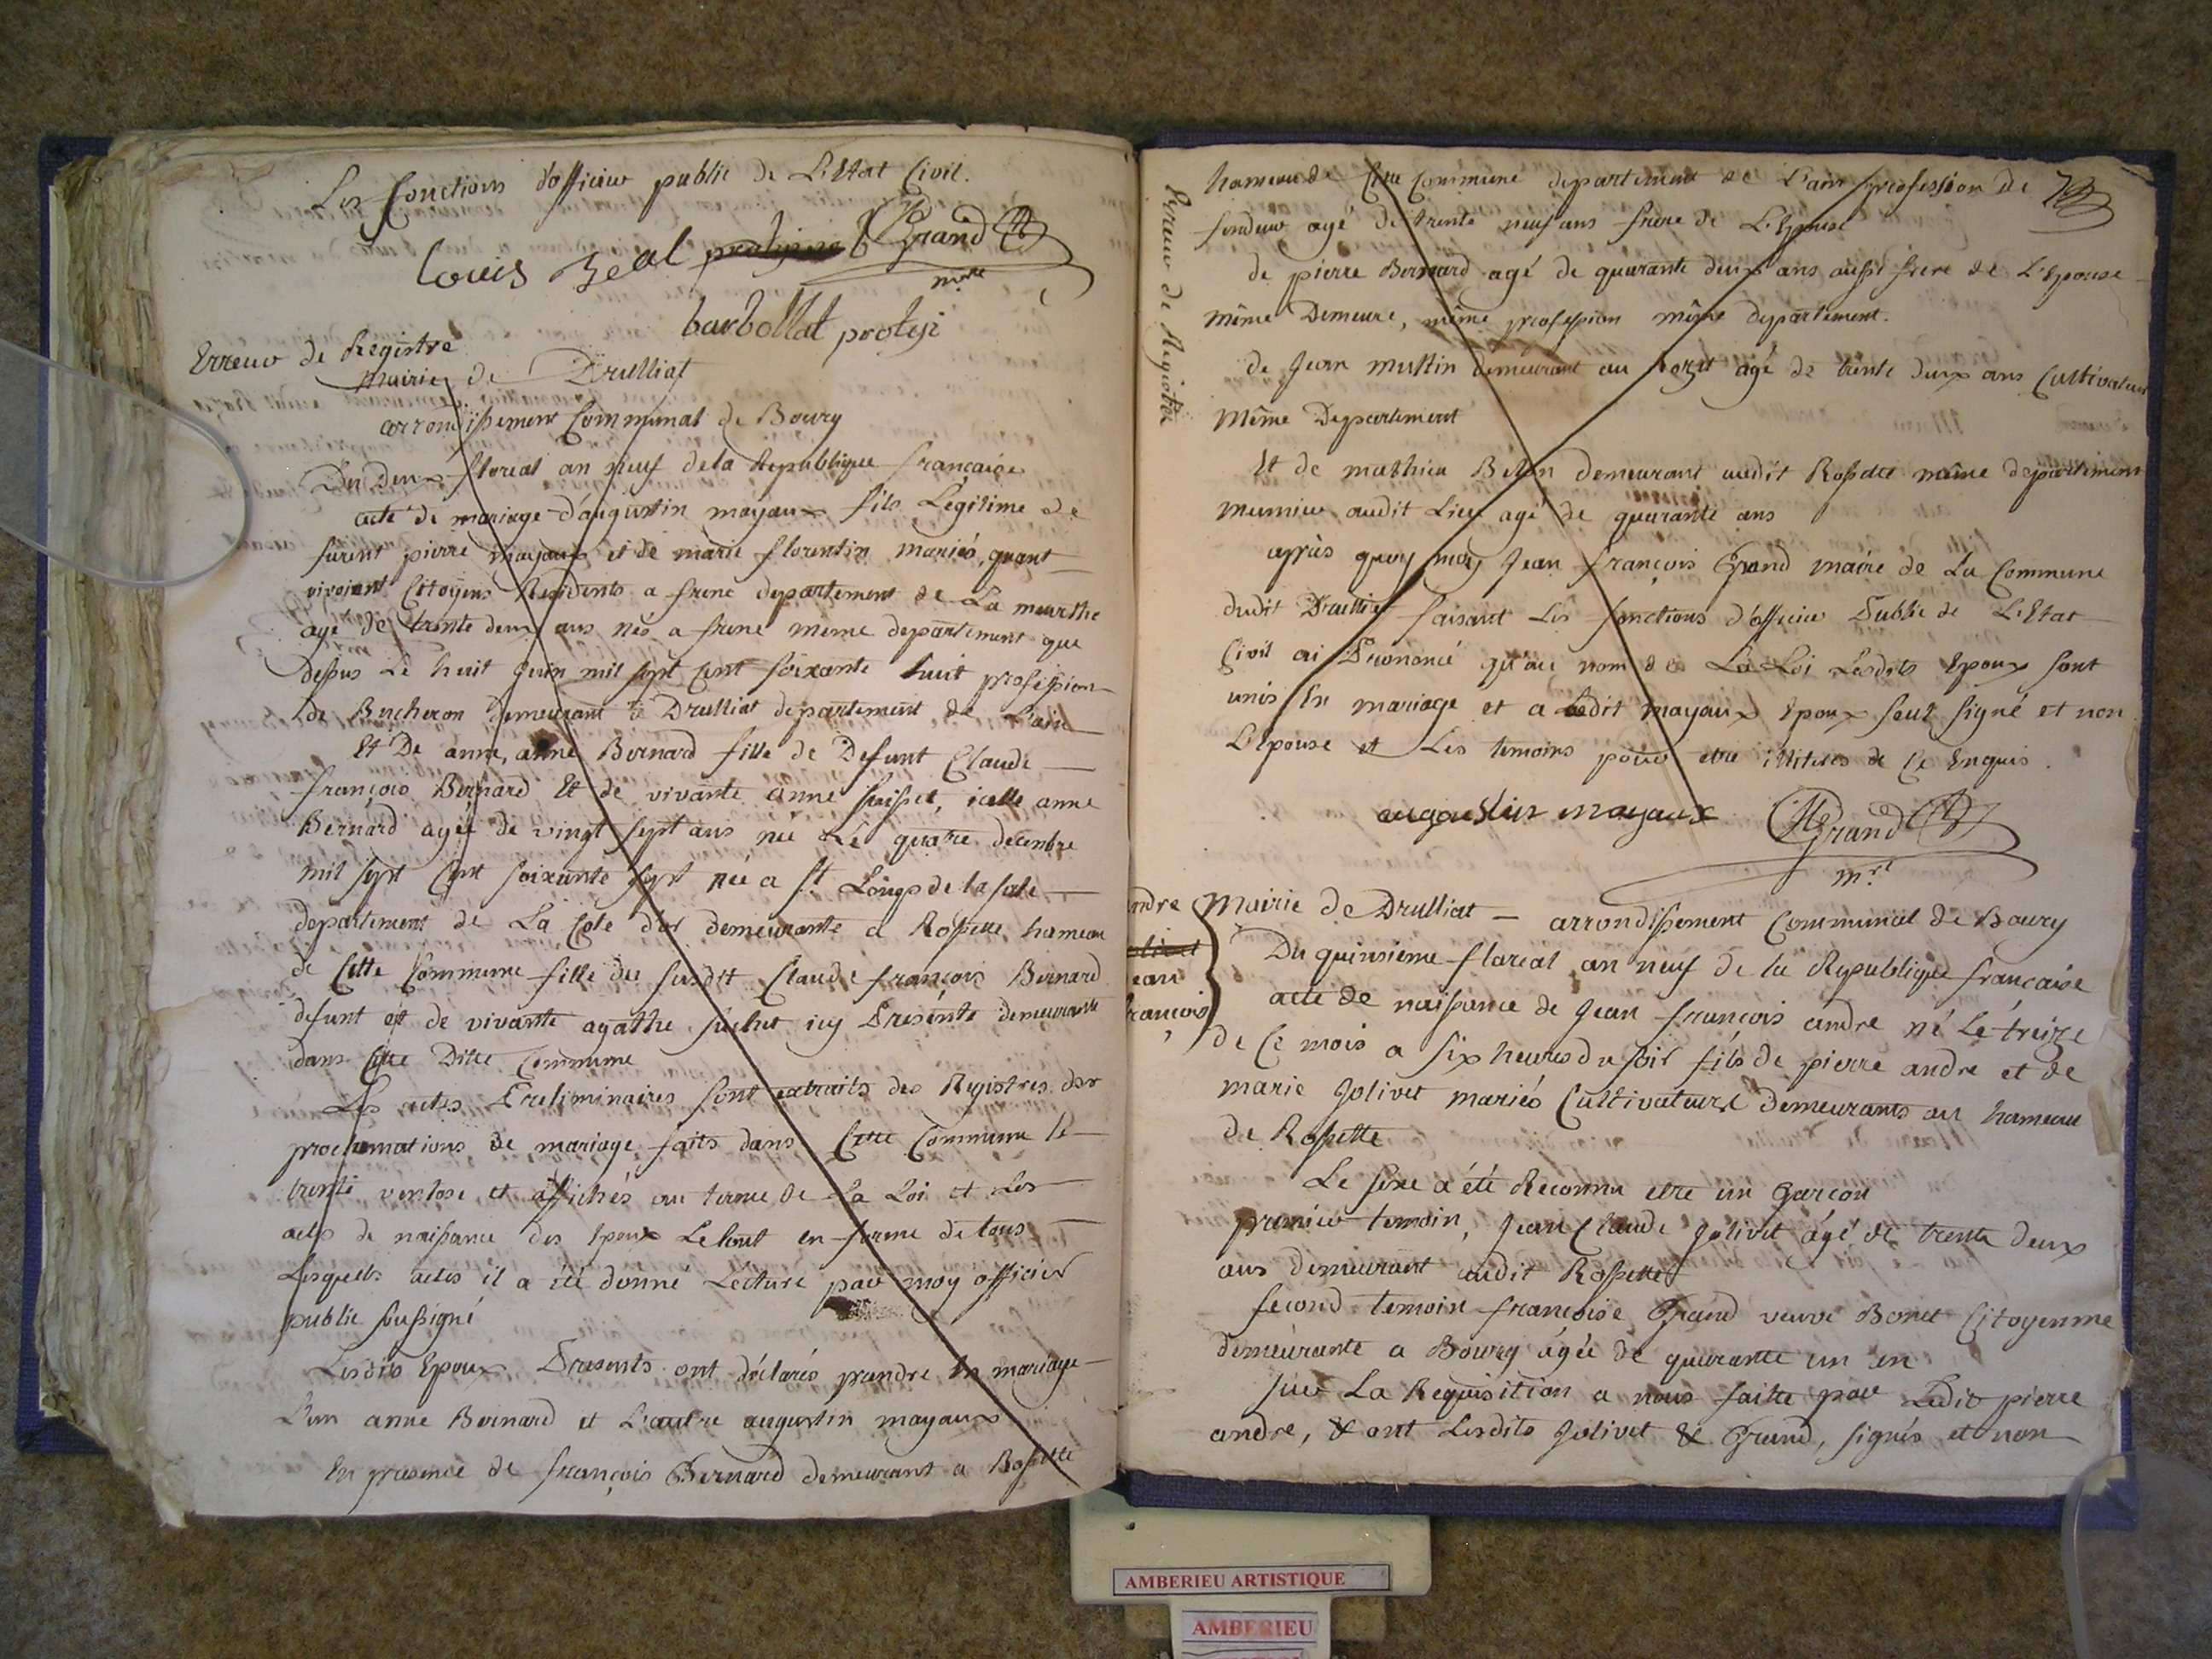 Les fonctions d'officier public de L'Etat Civil.
Louis Beal JGrand
mre
barbollat
Erreur de Registre
Mairie de Drulliat
arrondissement Communal de Bourg
Du Deux floreal an neuf de la Republique française
acte de mariage d'augustin mayaux fils Légitime de
furent pierre mayaux et de marie florentin mariés, quant
vivoient Citoyens Residents a frene departement de La meurthe
agé de trente deux ans nés a frene meme departement que
dessus Le huit Juin mil sept Cent soixante huit profession
de Bucheron demeurant a Drulliat departement de L'ain
Et De anne, anne Bernard fille de Defunt Claude
françois Bernard Et de vivante anne icelle anne
Bernard agée de vingt sept ans née Le quatre decembre
mil sept Cent soixante sept née a St Loups de la sale
departement de La Cote d'or demeurante a Rossette hameau
de Cette Commune fille du susdit Claude françois Bernard
defunt et de vivante agathe icy Presente demeurante
dans Cette Ditte Commune
Les actes Preliminaires sont extraits des Registres des
proclamations de mariage faits dans Cette Commune le
trente ventose et affichés au terme de La Loi et Les
actes de naissance des Epoux Le tout en forme de tous
Lesquels actes il a été donné Lecture par moy officier
public soussigné
Lesdits Epoux Presents ont déclarés prendre En mariage
L'un anne Bernard et L'autre augustin mayaux
En presence de françois Bernard demeurant a Rossette
Erreur de Registre
hameau de Cette Commune departement de L'ain profession de
fendeur agé de trente neuf ans frere de L'Epouse
de pierre Bernard agé de quarante deux ans aussi frere de L'Epouse
même Demeure, même profession même departement.
de Jean mustin demeurant au agé de trente deux ans Cultivateur
Même Departement
Et de mathieu demeurant audit Rossette même departement
meunier audit Lieu agé de quarante ans
après quoy moy Jean françois Grand maire de La Commune
dudit Drulliat faisant Les fonctions d'officier Public de L'Etat
Civil ai Prononcé qu'au nom de La Loi Lesdits Epoux sont
unis En mariage et a Ledit mayaux Epoux seul signé et non
L'Epouse et Les temoins pour etre illiteres de Ce Enquis.
augoustin mayaux JGrand
mre
andre
jean
françois
Mairie de Drulliat — arrondissement Communal de Bourg
Du quinsieme floreal an neuf de la Republique française
acte de naissance de Jean françois andre né Le treize
de Ce mois a six heures du soir fils de pierre andre et de
marie Jolivet mariés Cultivateurs demeurants au hameau
de Rossette
Le sexe a été Reconnu etre un garçon
premier temoin, Jean Claude Jolivet agé de trente deux
ans demeurant audit Rossette
second temoin françoise Grand veuve Bonet Citoyenne
demeurante a Bourg agée de quarante un en
sur La Requisition a nous faitte par Ledit pierre
andre, & ont Lesdits Jolivet & Grand, signés et non
AMBERIEU ARTISTIQUE
AMBERIEU